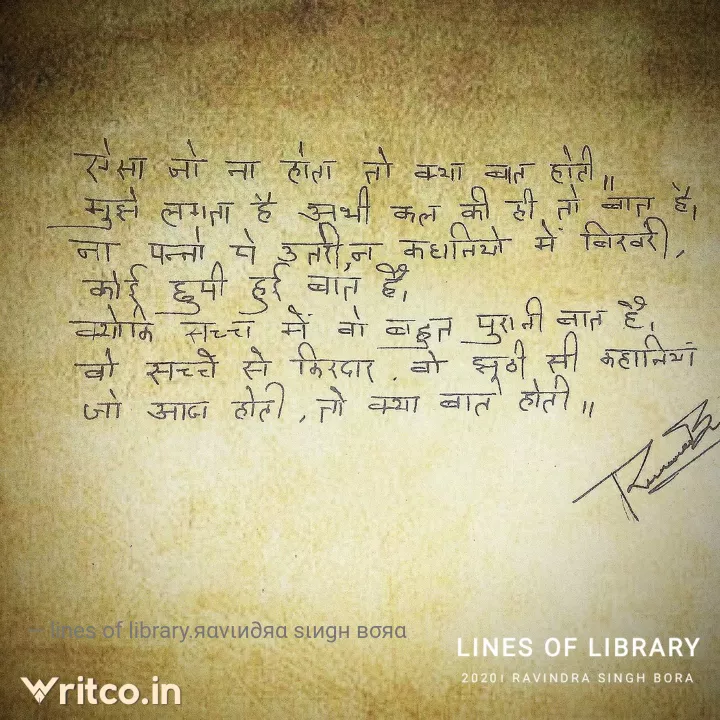 ऐसा जो ना होता तो क्या बात होती॥
मुझे लगता है अभी कल की ही तो बात है,
ना पन्नो पे उतरी, न कहानियो में बिखरी,
कोई छुपी हुई बात है,
क्योकि सच्च में वो बहुत पुरानी बात है,
वो सच्चे से किरदार, वो झूठी सी कहानियाँ
जो आज होती, तो क्या बात होती॥
– lines of library.яαvιиđяα sιиgн вσяα
LINES OF LIBRARY
2020। RAVINDRA SINGH BORA
Writco.in